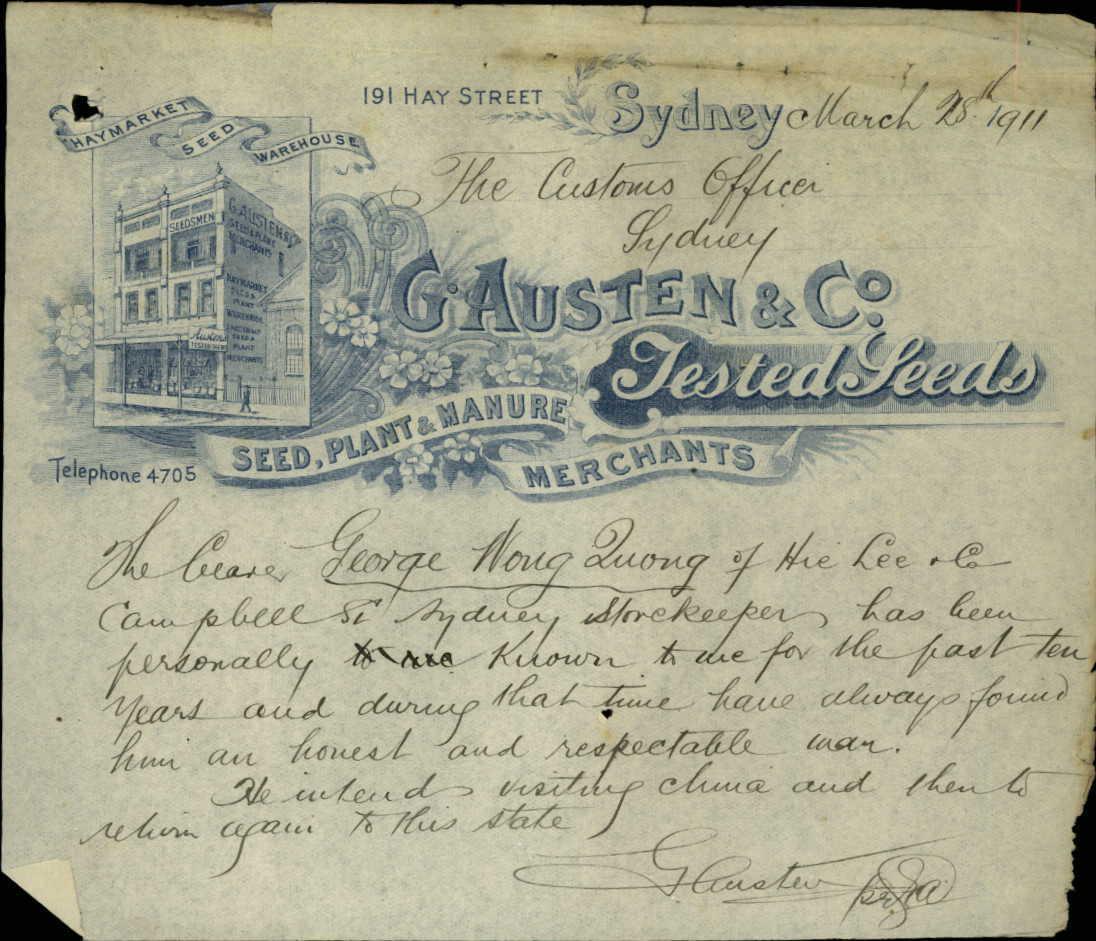 191 HAY STREET Sydney March 28th 1911
HAYMARKET SEED WAREHOUSE
The Customs Officer
Sydney
SEEDSMEN
G. AUSTEN & Co
SEED & PLANT
MERCHANTS
HAYMARKET
SEED &
PLANT
WAREHOUSE
SEED &
PLANT
MERCHANTS
Austen's
G. AUSTEN & Co.
Tested Seeds
SEED, PLANT & MANURE
MERCHANTS
Telephone 4705
The bearer George Wong Quong of Hie Lee & Co
Campbell St Sydney Storekeeper has been
personally to me Known to me for the past ten
years and during that time have always found
him an honest and respectable man.
He intends visiting China and then to
return again to this state
G Austen